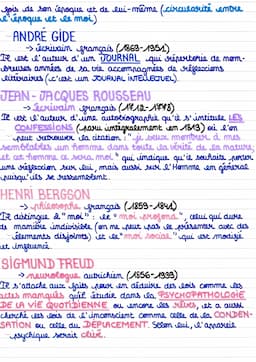 fois de son époque et de lui-même (circularité entre
l'époque et le moi)
ANDRÉ GIDE
→ écrivain français (1869-1951)
Il est l'auteur d'un JOURNAL qui répertorie de nom-
breuses années de sa vie accompagnées de réflexions
littéraires (c'est un JOURNAL INTELLECTUEL).
JEAN-JACQUES ROUSSEAU
→ écrivain français (1712-1778)
Il est l'auteur d'une autobiographie qu'il s'intitule LES
CONFESSIONS (paru intégralement en 1813) où l'on
peut retrouver la citation : "je veux montrer à mes
semblables un homme dans toute la vérité de la nature;
et cet homme ce sera moi" qui indique qu'il souhaite porter
une réflexion sur lui, mais aussi sur l'Homme en général
puisqu'ils se ressemblent.
HENRI BERGSON
→ philosophe français (1859-1941)
Il distingue 2 "moi" : le "moi profond", celui qui dure
de manière indivisible (on ne peut pas le présenter avec des
éléments disjoints) et le "moi social" qui est modifié
et influencé.
SIGMUND FREUD
→ neurologue autrichien (1856-1939)
Il s'attache aux faits pour en déduire des lois comme les
actes manqués qu'il étudie dans la PSYCHOPATHOLOGIE
DE LA VIE QUOTIDIENNE ou encore les rêves, et a aussi
cherché les lois de l'inconscient comme celle de la CONDEN-
SATION ou celle du DÉPLACEMENT. Selon lui, l'appareil
psychique serait clivé.